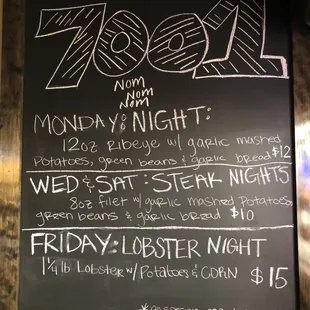 7001
Nom
Nom
Nom
MONDAY: NIGHT:
12oz Ribeye w/ garlic mashed
Potatoes, green beans & garlic bread $12
WED & SAT: STEAK NIGHTS
8oz filet w/ garlic mashed Potatoes
green beans & garlic bread $10
FRIDAY: LOBSTER NIGHT
1 1/4 lb Lobster w/ Potatoes & CORN $15